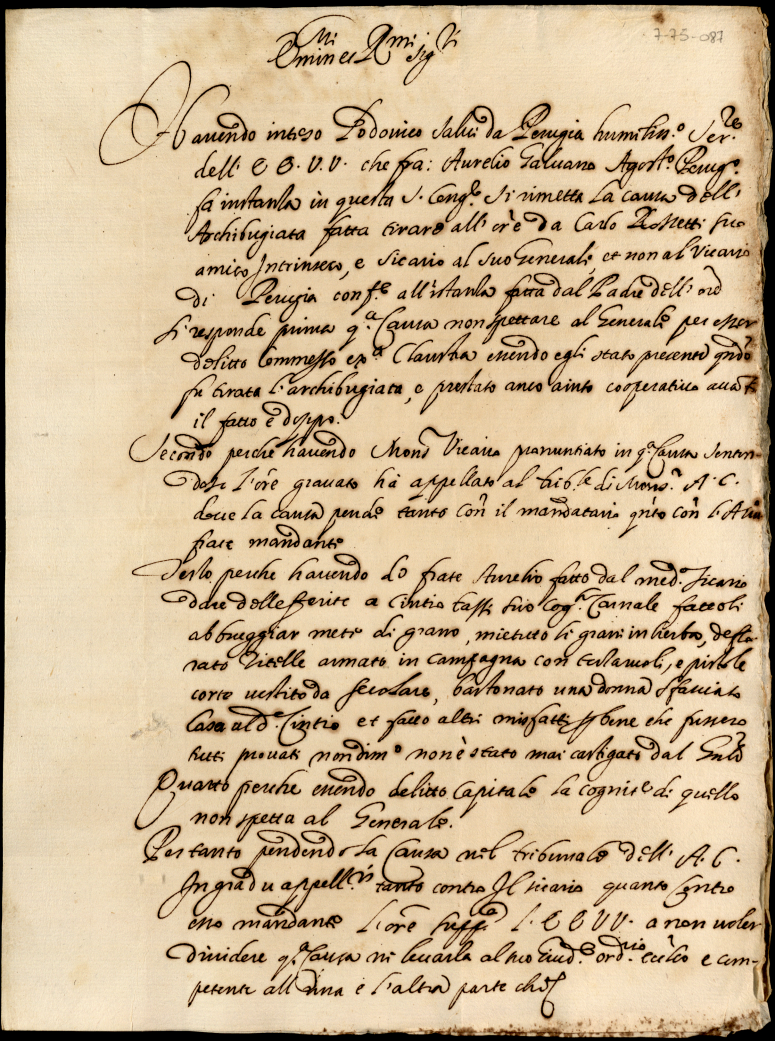 7-75-087
Emin.mi et R.mi Sig.ri
Havendo inteso Lodovico Salvi da Perugia humiliss.o Ser.re
dell' E E. V.V. che fra: Aurelio Galvano Agost.o Perug.o
fa instanza in questa S. Cong.e si rimetta la causa dell'
Archibugiata fatta tirare all' ore da Carlo Rossetti suo
amico Intrinseco, e sicario al suo Generale, et non al Vicario
di Perugia conf.e all' istanza fatta dal Padre dell' ore
Si responde prima q.a Causa non spettare al Generale per esser
delitto Commesso ex.a Claustra essendo egli stato presente qndo
fu tirata l'archibugiata, e prestato anco aiuto cooperativo avanti
il fatto e doppo.
Secondo perche havendo Mons Vicario pronuntiato in q.a Causa senten-
dosi l'ore gravato hà appellato al trib.le di Mons.r A. C.
dove la causa pende tanto con il mandatario qnto con l'
frate mandante
Terzo, perche havendo do frate Aurelio fatto dal med.o sicario
dare delle ferite a Cintio tassi suo Cog.n Carnale fattoli
abbruggiar mete di grano, mietuto li grani in herba, deflo-
rato Zitelle armato in campagna con e pistole
corte vestito da secolare, bastonato una donna sfasciato
Casa al d.o Cintio et fatto altri misfatti se bene che fussero
tutti provati nondim.o non è stato mai castigato dal Gnle
Quarto perche essendo delitto Capitale la cognit.e di quello
non spetta al Generale.
Pertanto pendendo la Causa nel tribunale dell' A. C.
In gradu appell.nis tanto contro Il sicario quanto Contro
esso mandante L'ore supp.ca l' E E V V. a non voler
dividere q.a Causa ne levarla al suo Giud.e ord.rio e com-
petente all' una e l'altra parte che